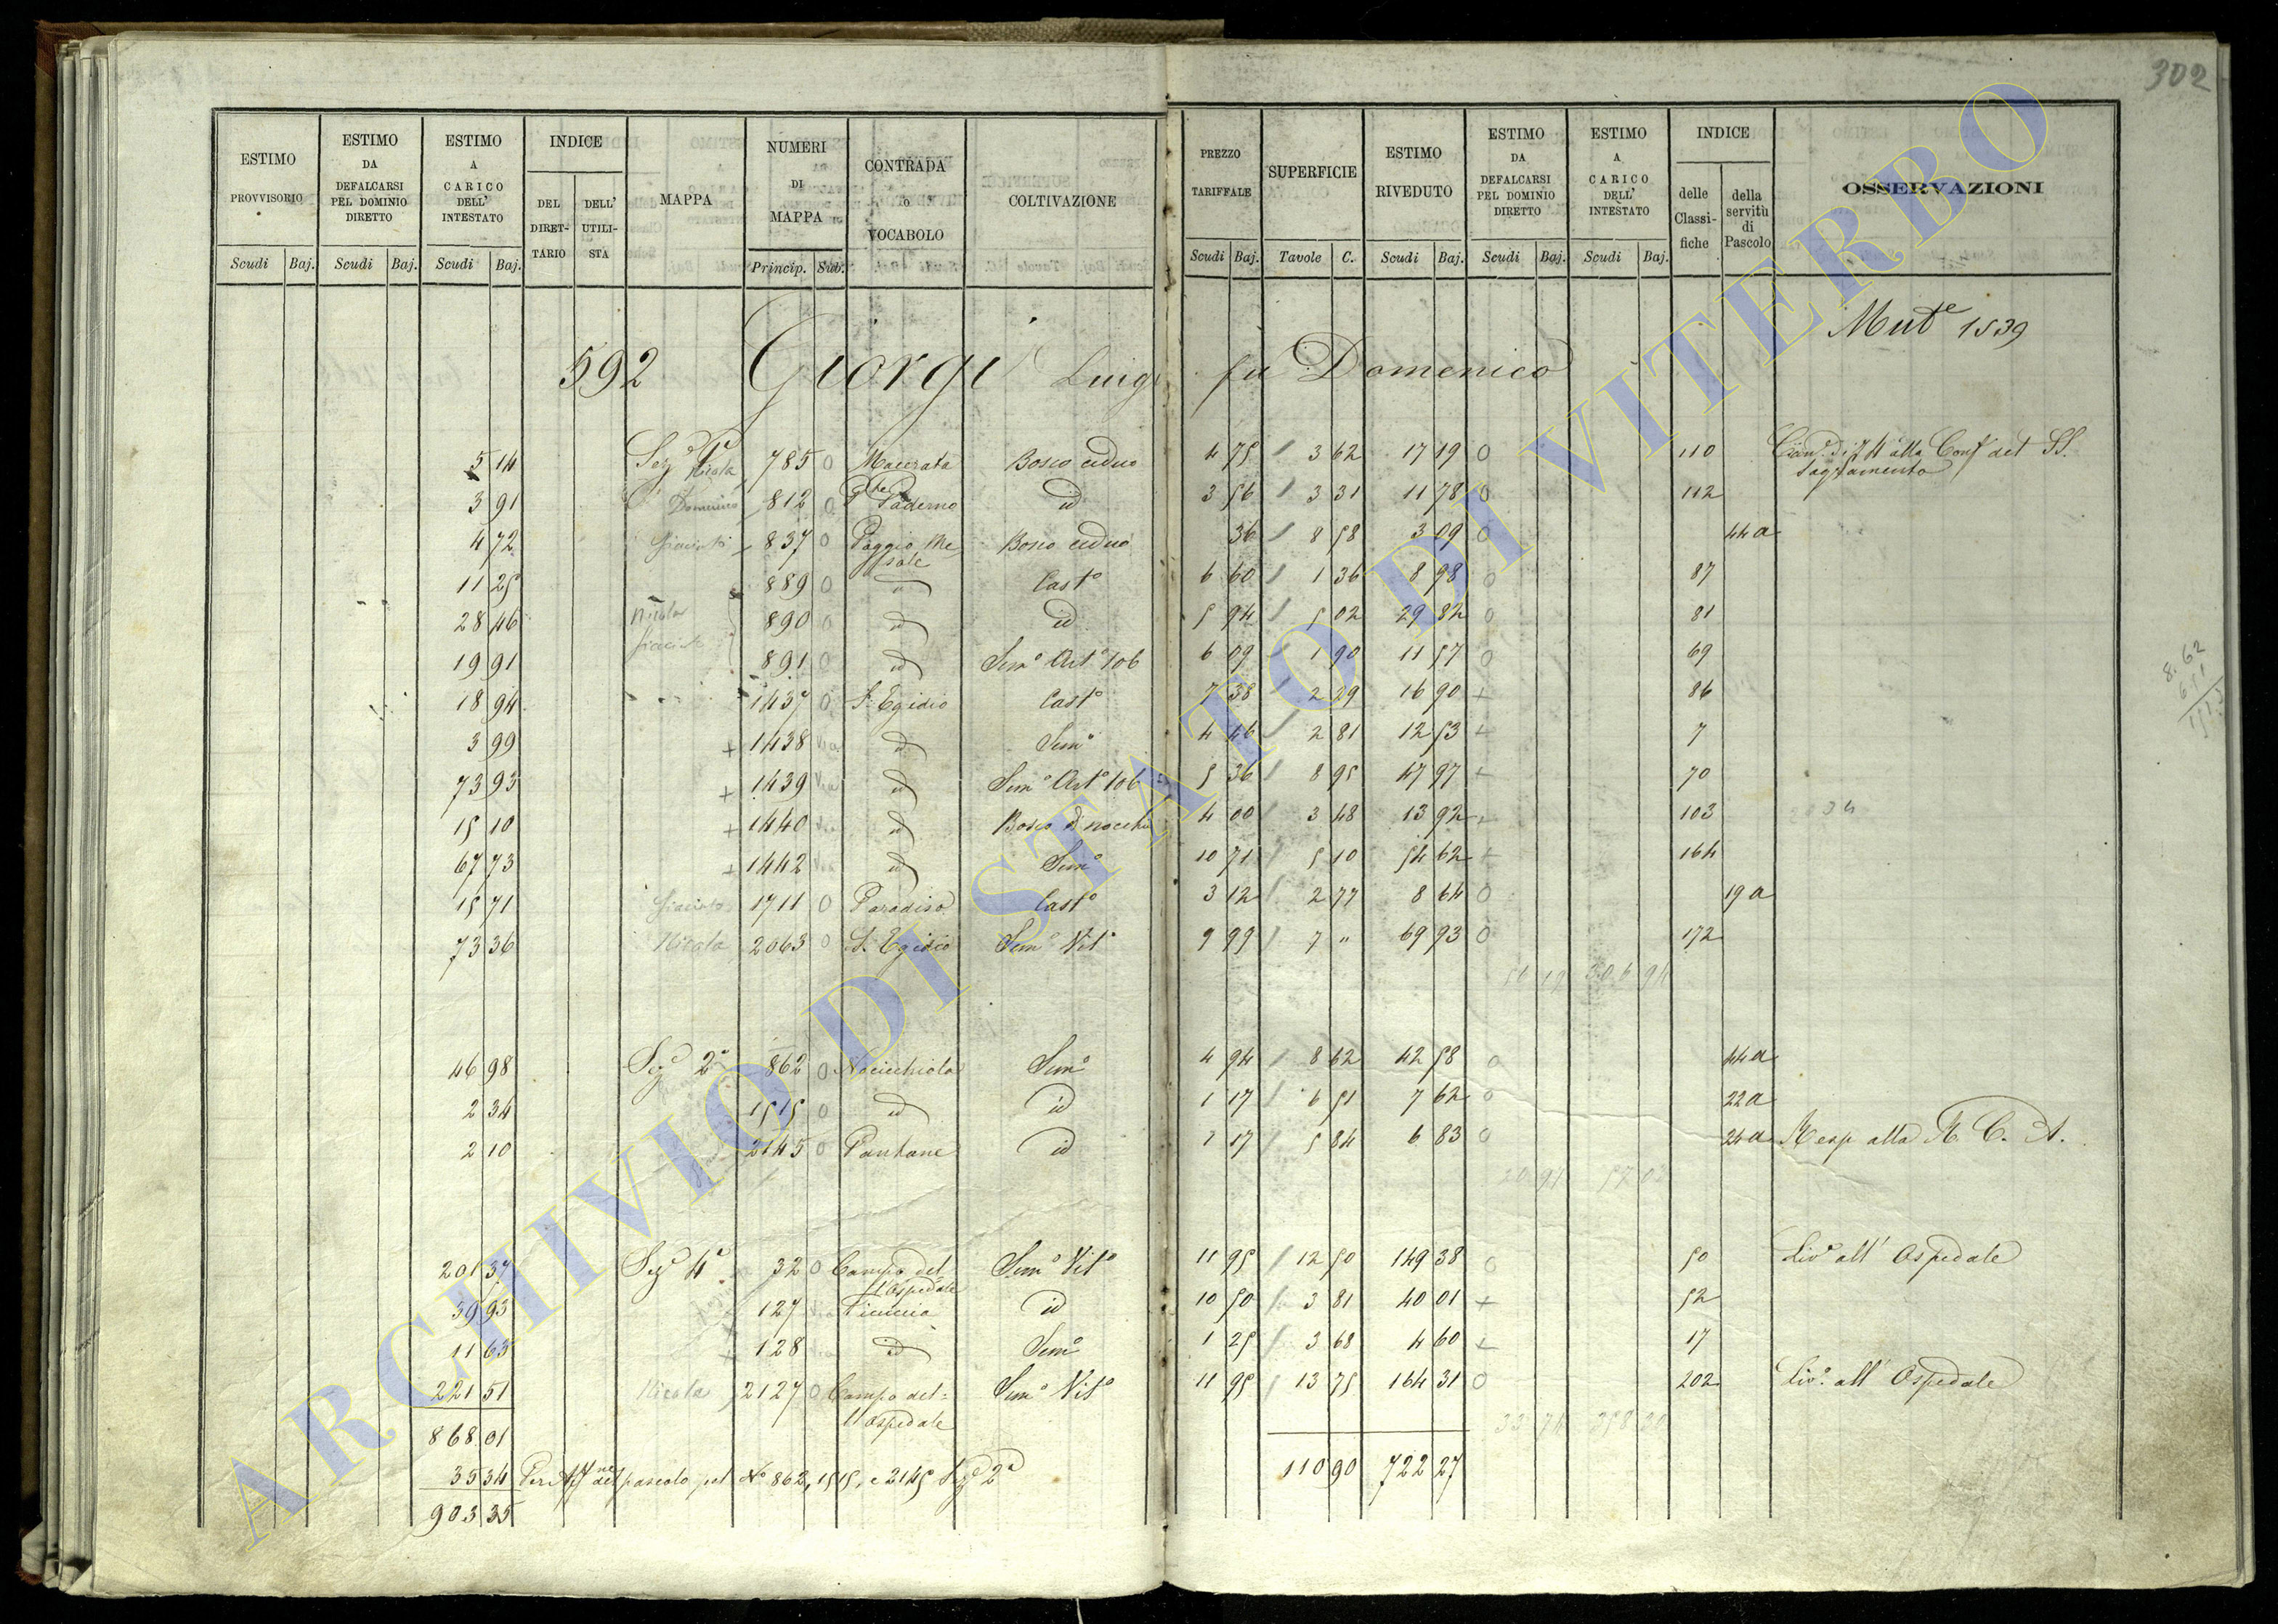 302
ESTIMO PROVVISORIO Scudi Baj.
ESTIMO DA DEFALCARSI PEL DOMINIO DIRETTO Scudi Baj.
ESTIMO A CARICO DELL' INTESTATO Scudi Baj.
INDICE DEL DIRETTARIO DELL' UTILISTA
MAPPA
NUMERI DI MAPPA Princip. Sub.
CONTRADA O VOCABOLO
COLTIVAZIONE
PREZZO TARIFFALE Scudi Baj.
SUPERFICIE Tavole C.
ESTIMO RIVEDUTO Scudi Baj.
ESTIMO DA DEFALCARSI PEL DOMINIO DIRETTO Scudi Baj.
ESTIMO A CARICO DELL' INTESTATO Scudi Baj.
INDICE delle Classifiche della servitù di Pascolo
OSSERVAZIONI
Mut.e 1539
592 Giorgi Luigi fu Domenico
5 14 Sez.e 1a Nicola 785 0 Macerata Bosco ceduo 4 75 3 62 17 19 0 110 alla Conf. del SS. Sagramento
3 91 Domenico 812 0 Paderno id 3 56 3 31 11 78 0 112
4 72 Giacinto 837 0 Poggio Me Bosco ceduo 36 8 58 3 09 0 44a
11 25 889 0 id Cast.o 6 60 1 36 8 98 0 87
28 46 Nicola 890 0 id id 5 94 5 02 29 82 0 81
19 91 Giacinto 891 0 id Sem.o Art.o 106 6 09 1 90 11 57 0 69
18 94 1437 0 S. Egidio Cast.o 7 38 2 29 16 90 + 86
3 99 + 1438 id Sem.o 4 46 2 81 12 53 + 7
73 93 + 1439 id Sem.o Art.o 106 5 36 8 95 47 97 + 70
15 10 + 1440 id Bosco d nocchie 4 00 3 48 13 92 + 103
67 73 + 1442 id Sem.o 10 71 5 10 54 62 + 164
15 71 Giacinto 1711 0 Paradiso Cast.o 3 12 2 77 8 64 0 19a
73 36 Nicola 2063 0 S. Egidio Sem.o Vit.o 9 99 7 " 69 93 0 172
306 94
46 98 Sez.e 2a 862 0 Nocicchiola Sem.o 4 94 8 62 42 58 0 44a
2 34 1515 0 id id 1 17 6 51 7 62 0 22a
2 10 2145 0 Pantane id 1 17 5 84 6 83 0 24a Resp alla R. C. A.
201 37 Sez.e 4a 32 0 Campo del l'Ospedale Sem.o Vit.o 11 95 12 50 149 38 0 50 Liv.o all' Ospedale
39 93 127 id 10 50 3 81 40 01 + 52
11 63 + 128 id Sem.o 1 25 3 68 4 60 + 17
221 51 Nicola 2127 0 Campo del l'Ospedale Sem.o Vit.o 11 95 13 75 164 31 0 202 Liv.o all' Ospedale
868 01
110 90 722 27
35 34 Per Aff.ne del pascolo pel N.o 862, 1515, e 2145 Sez.e 2a
903 35
8.62
651
ARCHIVIO DI STATO DI VITERBO